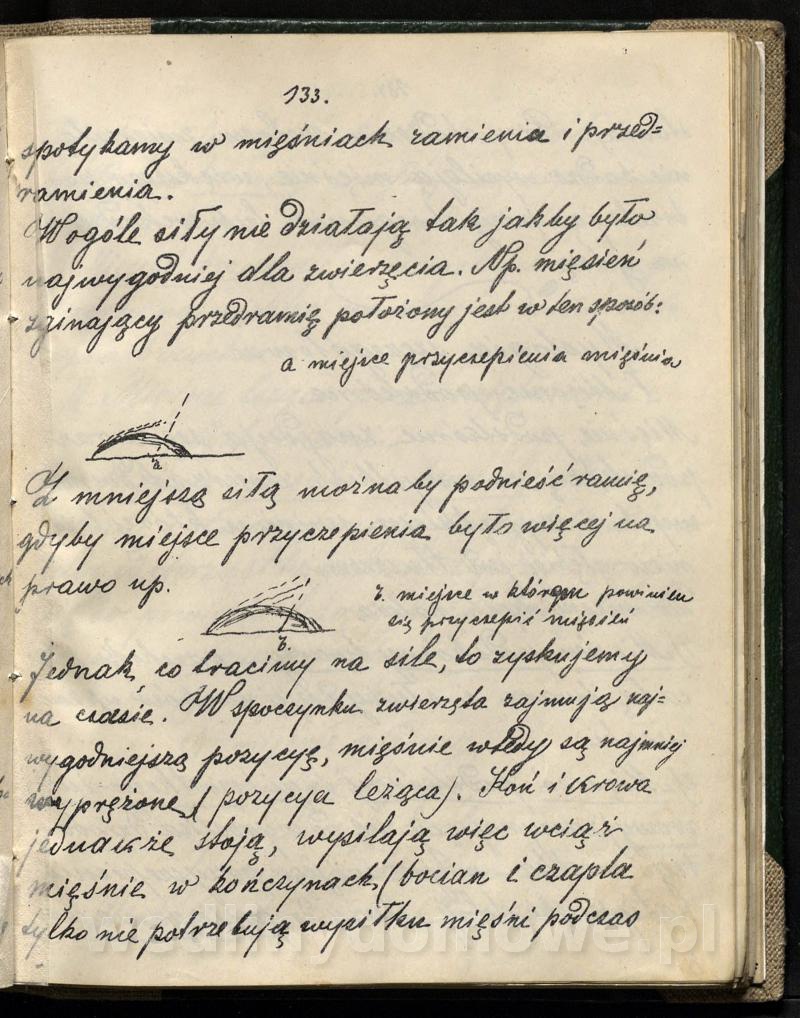 133.
spotykamy w mięśniach ramienia i przed=
ramienia.
Wogóle siły nie działają tak jakby było
najwygodniej dla zwierzęcia. Np. mięsień
zginający przedramię położony jest w ten sposób:
a miejsce przyczepienia mięśnia
a
Z mniejszą siłą możnaby podnieść ramię,
gdyby miejsce przyczepienia było więcej na
prawo np.
b. miejsce w którym powinien
się przyczepić mięsień
b.
Jednak, co tracimy na sile, to zyskujemy
na czasie. W spoczynku zwierzęta zajmują naj=
wygodniejszą pozycyę, mięśnie wtedy są najmniej
wyprężone (pozycya leżąca). Koń i krowa
jednakże stoją, wysilają więc wciąż
mięśnie w kończynach (bocian i czapla
tylko nie potrzebują wysiłku mięśni podczas
wedlinydomowe.pl